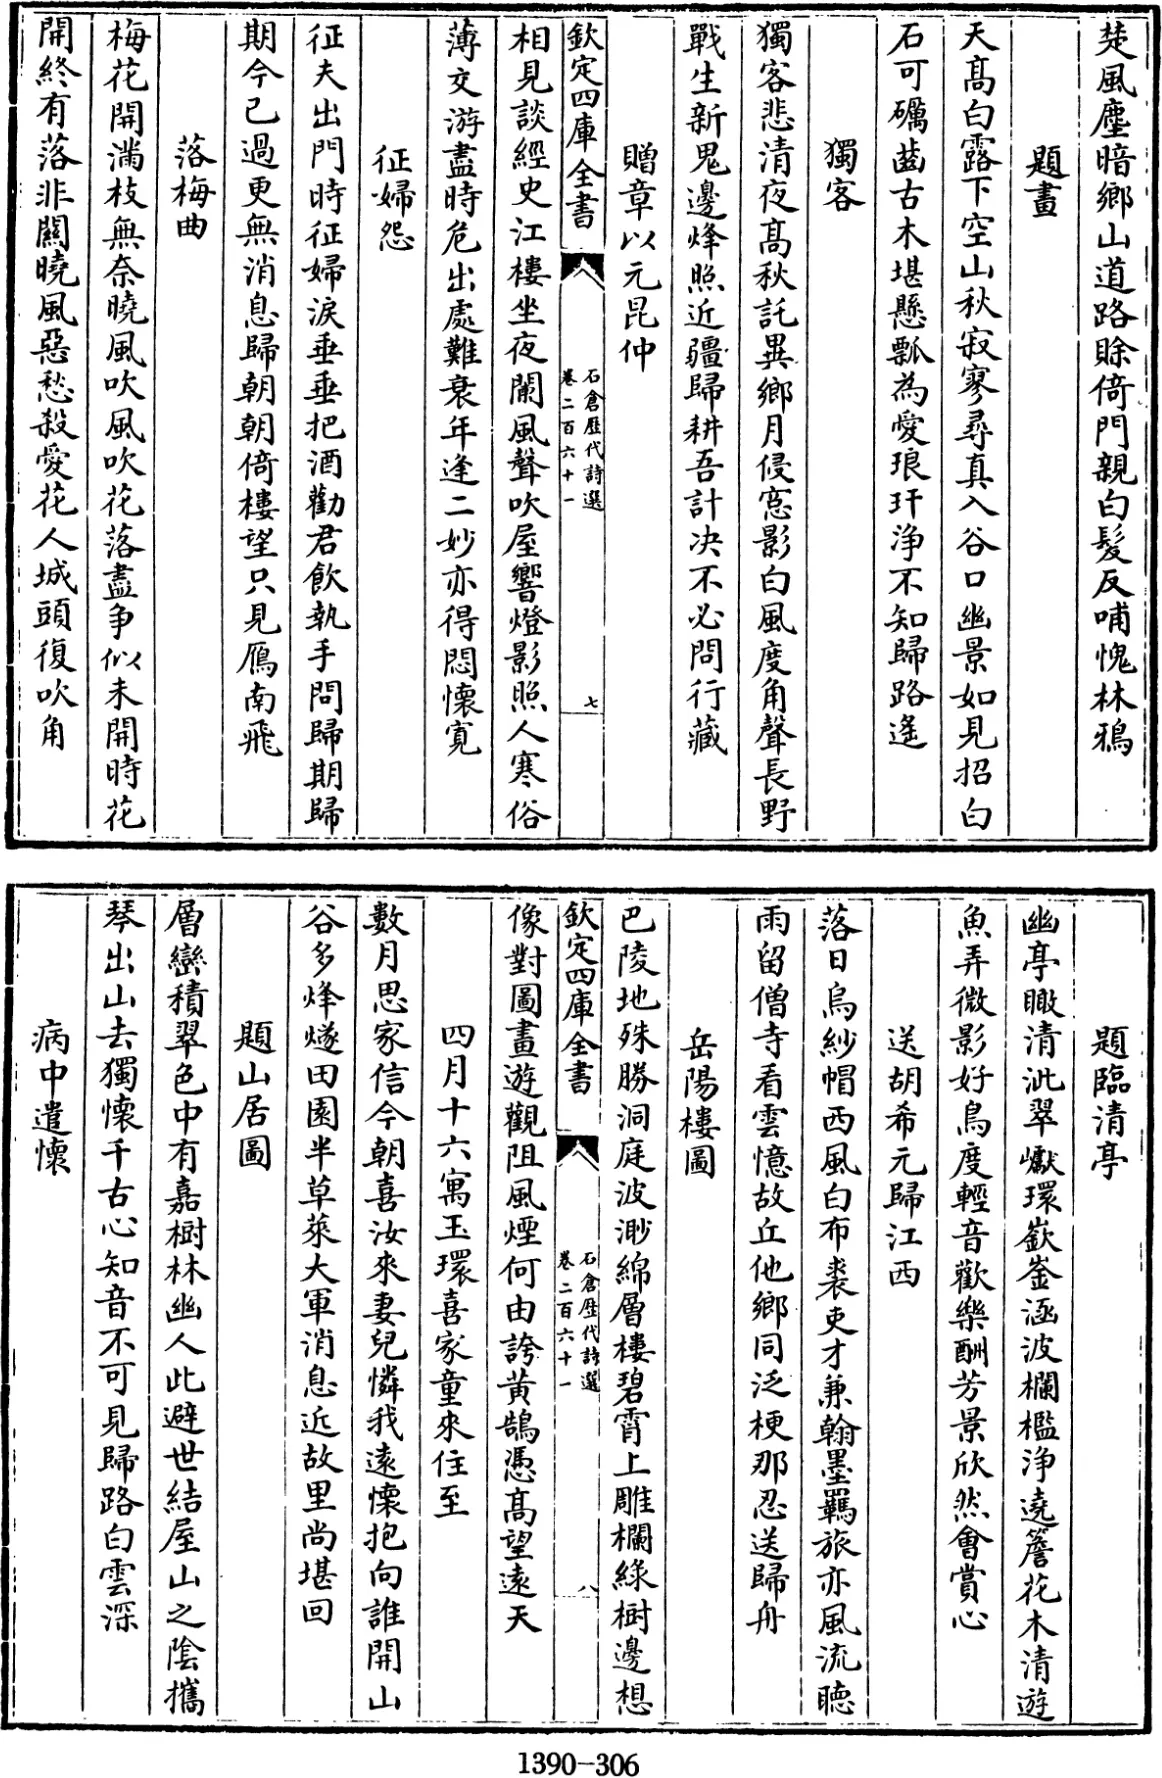 楚風塵暗鄉山道路賖倚門親白髮反哺愧林鴉
題畫
天髙白露下空山秋寂寥尋真入谷口幽景如見招白
石可礪齒古木堪懸瓢為愛琅玕浄不知歸路遙
獨客
獨客悲清夜髙秋託異鄉月侵窓影白風度角聲長野
戰生新鬼邊烽照近疆歸耕吾計决不必問行藏
贈章以元昆仲
欽定四庫全書
石倉歷代詩選
卷二百六十一
七
相見談經史江樓坐夜闌風聲吹屋響燈影照人寒俗
薄交游盡時危出處難衰年逢二妙亦得悶懷寛
征婦怨
征夫出門時征婦淚垂垂把酒勸君飲執手問歸期歸
期今已過更無消息歸朝朝倚樓望只見鴈南飛
落梅曲
梅花開滿枝無奈曉風吹風吹花落盡争似未開時花
開終有落非關曉風惡愁殺愛花人城頭復吹角
題臨清亭
幽亭瞰清泚翠巘環嶔崟涵波欄檻浄遶簷花木清遊
魚弄微影好鳥度輕音歡樂酬芳景欣然會賞心
送胡希元歸江西
落日烏紗帽西風白布裘吏才兼翰墨羈旅亦風流聴
雨留僧寺看雲憶故丘他鄉同泛梗那忍送歸舟
岳陽樓圖
巴陵地殊勝洞庭波渺綿層樓碧霄上雕欄緑樹邊想
欽定四庫全書
石倉歷代詩選
卷二百六十一
八
像對圖畫遊觀阻風煙何由誇黄鵠憑髙望遠天
四月十六寓玉環喜家童來住至
數月思家信今朝喜汝來妻兒憐我遠懷抱向誰開山
谷多烽燧田園半草萊大軍消息近故里尚堪回
題山居圖
層巒積翠色中有嘉樹林幽人此避世結屋山之陰攜
琴出山去獨懷千古心知音不可見歸路白雲深
病中遣懷
1390-306